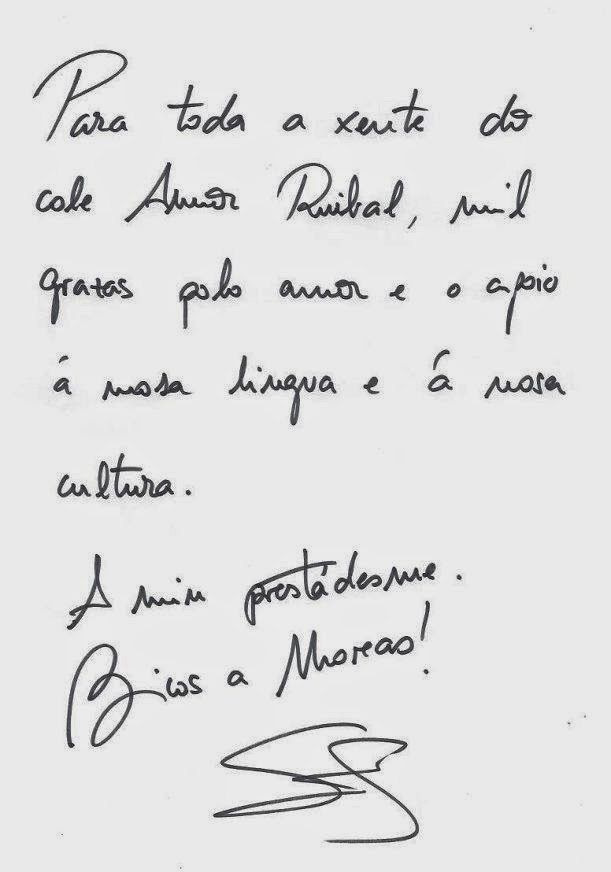 Para toda a xente do
cole Amor Ruibal, mil
grazas polo amor e o apoio
á nosa lingua e á nosa
cultura.
A min prestádesme.
Bicos a Moreas!